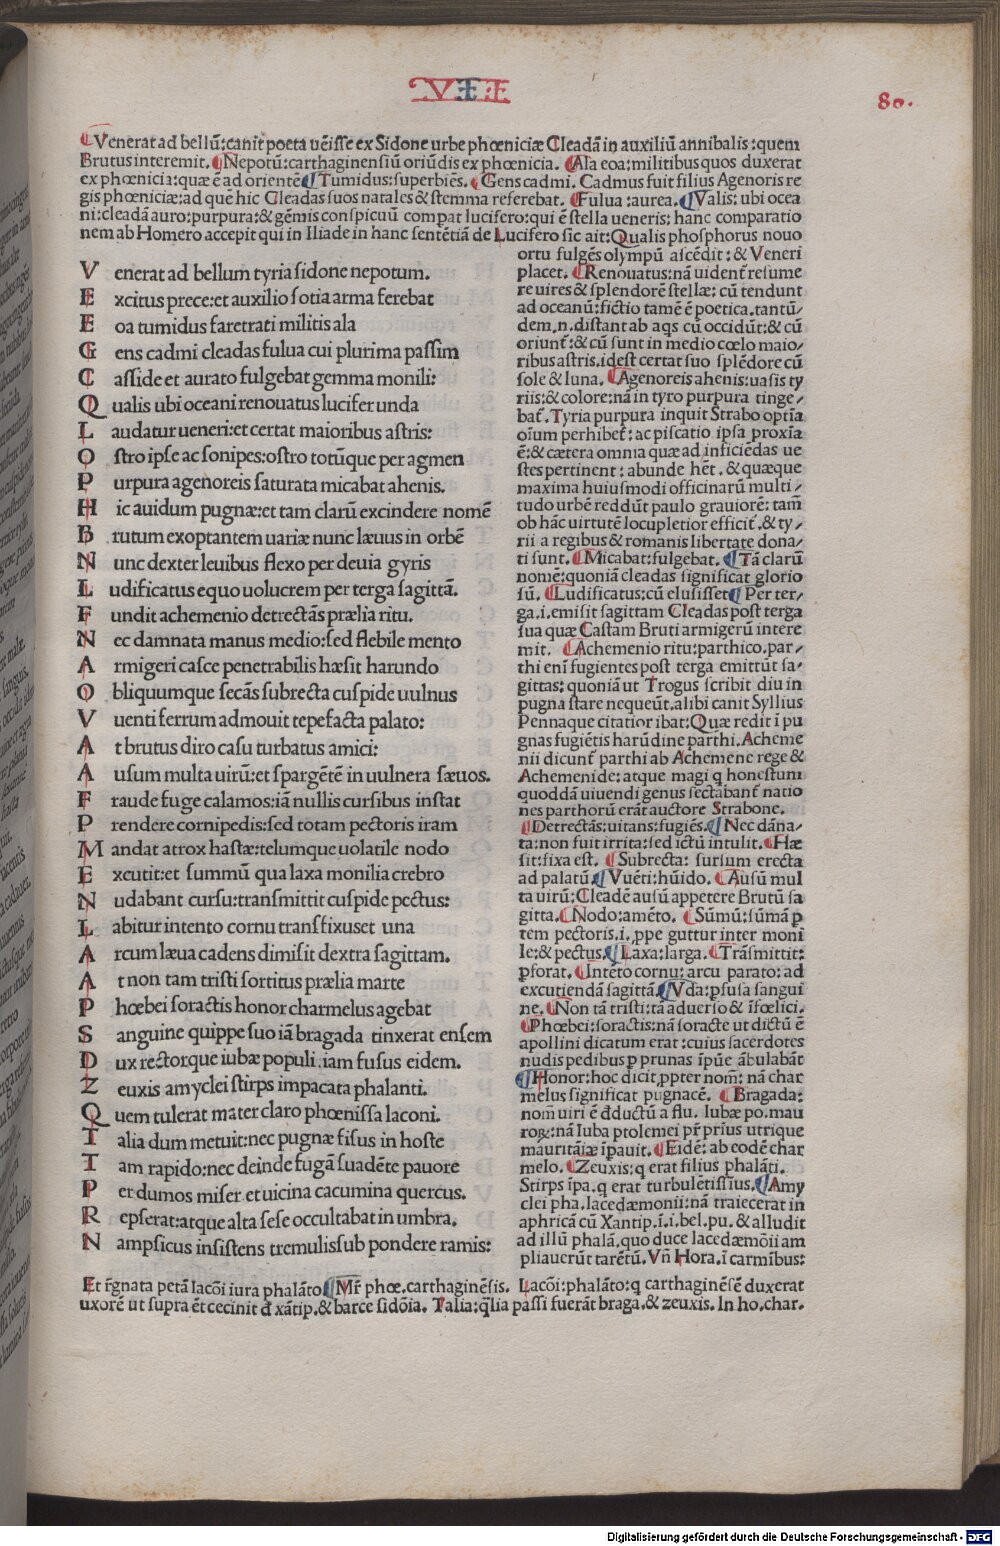 VII
80.
Venerat ad bellū:canit poeta uēisse ex Sidone urbe phœniciæ Cleadā in auxiliū annibalis:quem
Brutus interemit. Nepotū:carthaginensiū oriūdis ex phœnicia. Ala eoa:militibus quos duxerat
ex phœnicia:quæ ē ad orientē Tumidus:superbiēs. Gens cadmi. Cadmus fuit filius Agenoris re
gis phœniciæ:ad quē hic Cleadas suos natales & stemma referebat. Fulua:aurea. Valis: ubi ocea
ni:cleadā auro:purpura:& gēmis conspicuū compat lucifero:qui ē stella ueneris: hanc comparatio
nem ab Homero accepit qui in Iliade in hanc sentētiā de Lucifero sic ait:Qualis phosphorus nouo
V enerat ad bellum tyria sidone nepotum.
E xcitus prece:et auxilio sotia arma ferebat
E oa tumidus faretrati militis ala
G ens cadmi cleadas fulua cui plurima passim
C asside et aurato fulgebat gemma monili:
Q ualis ubi oceani renouatus lucifer unda
L audatur ueneri:et certat maioribus astris:
O stro ipse ac sonipes:ostro totūque per agmen
P urpura agenoreis saturata micabat ahenis.
H ic auidum pugnæ:et tam clarū excindere nomē
B rutum exoptantem uariæ nunc læuus in orbē
N unc dexter leuibus flexo per deuia gyris
L udificatus equo uolucrem per terga sagittā.
F undit achemenio detrectās prælia ritu.
N ec damnata manus medio:sed flebile mento
A rmigeri casce penetrabilis hæsit harundo
O bliquumque secās subrecta cuspide uulnus
V uenti ferrum admouit tepefacta palato:
A t brutus diro casu turbatus amici:
A usum multa uirū:et spargētē in uulnera sæuos.
F raude fuge calamos:iā nullis cursibus instat
P rendere cornipedis:sed totam pectoris iram
M andat atrox hastæ:telumque uolatile nodo
E xcutit:et summū qua laxa monilia crebro
N udabant cursu:transmittit cuspide pectus:
L abitur intento cornu transfixuset una
A rcum læua cadens dimisit dextra sagittam.
A t non tam tristi sortitus prælia marte
P hœbei soractis honor charmelus agebat
S anguine quippe suo iā bragada tinxerat ensem
D ux rectorque iubæ populi.iam fusus eidem.
Z euxis amyclei stirps impacata phalanti.
Q uem tulerat mater claro phœnissa laconi.
T alia dum metuit:nec pugnæ fisus in hoste
T am rapido:nec deinde fugā suadēte pauore
P er dumos miser et uicina cacumina quercus.
R epserat:atque alta sese occultabat in umbra.
N ampsicus insistens tremulis sub pondere ramis:
ortu fulgēs olympū ascēdit:& Veneri
placet. Renouatus:nā uident̄ resume
re uires & splendorē stellæ: cū tendunt
ad oceanū:fictio tamē ē poetica.tantū/
dem.n.distant ab aqs cū occidūt:& cū
oriunt̄:& cū sunt in medio cœlo maio/
ribus astris.idest certat suo splēdore cū
sole & luna. Agenoreis ahenis:uasis ty
riis:& colore:nā in tyro purpura tinge/
bat̄. Tyria purpura inquit Strabo optīa
oīum perhibet̄: ac piscatio ipsa proxīa
ē:& cætera omnia quæ ad inficiēdas ue
stes pertinent: abunde hēt.& quæque
maxima huiusmodi officinarū multi/
tudo urbē reddūt paulo grauiorē: tam̄
ob hāc uirtutē locupletior efficit̄.& ty/
rii a regibus & romanis libertate dona/
ti sunt. Micabat:fulgebat. Tā clarū
nomē:quoniā cleadas significat glorio
sū. Ludificatus:cū elusisset Per ter/
ga.i.emisit sagittam Cleadas post terga
sua quæ Castam Bruti armigerū intere
mit. Achemenio ritu:parthico.par/
thi enī fugientes post terga emittūt sa/
gittas: quoniā ut Trogus scribit diu in
pugna stare nequeūt.alibi canit Syllius
Pennaque citatior ibat:Quæ redit ī pu
gnas fugiētis harūdine parthi.Acheme
nii dicunt̄ parthi ab Achemene rege &
Achemenide:atque magi q honestum
quoddā uiuendi genus sectabant̄ natio
nes parthorū erāt auctore Strabone.
Detrectās:uitans:fugiēs. Nec dāna/
ta:non fuit irrita:sed ictū intulit. Hæ
sit:fixa est. Subrecta: sursum erecta
ad palatū. Vuēti:hūido. Ausū mul
ta uirū:Cleadē ausū appetere Brutū sa
gitta. Nodo:amēto. Sūmū:sūmā p
tem pectoris.i.ppe guttur inter moni
le:& pectus. Laxa:larga. Trāsmittit:
pforat. Intēto cornu:arcu parato:ad
excutiendā sagittā. Vda:pfusa sangui
ne. Non tā tristi:tā aduerso & īfœlici.
Phœbei:soractis:nā soracte ut dictū ē
apollini dicatum erat:cuius sacerdotes
nudis pedibus p prunas īpūe ābulabāt
Honor:hoc dicit ppter nom̄: nā char
melus significat pugnacē. Bragada:
nom̄ uiri ē dductū a flu. Iubæ po.mau
roꝝ:nā Iuba ptolemei pr̄ prīus utrique
mauritāiæ īpauit. Eidē: ab eodē char
melo. Zeuxis:q erat filius phalāti.
Stirps īpa.q erat turbulētissius. Amy
clei pha.lacedæmonii:nā traiecerat in
aphricā cū Xantip.ī.i.bel.pu.& alludit
ad illū phalā.quo duce lacedæmōii am
pliauerūt tarētū. Vn̄ Hora.ī carmībus:
Et r̄gnata petā lacōi iura phalāto Mr̄ phœ.carthaginēsis. Lacōi:phalāto:q carthaginēsē duxerat
uxorē ut supra ēt cecinit d xātip.& barce sidōia. Talia:q̄lia passi fuerāt braga.& zeuxis. In ho.char.
Digitalisierung gefördert durch die Deutsche Forschungsgemeinschaft - DFG